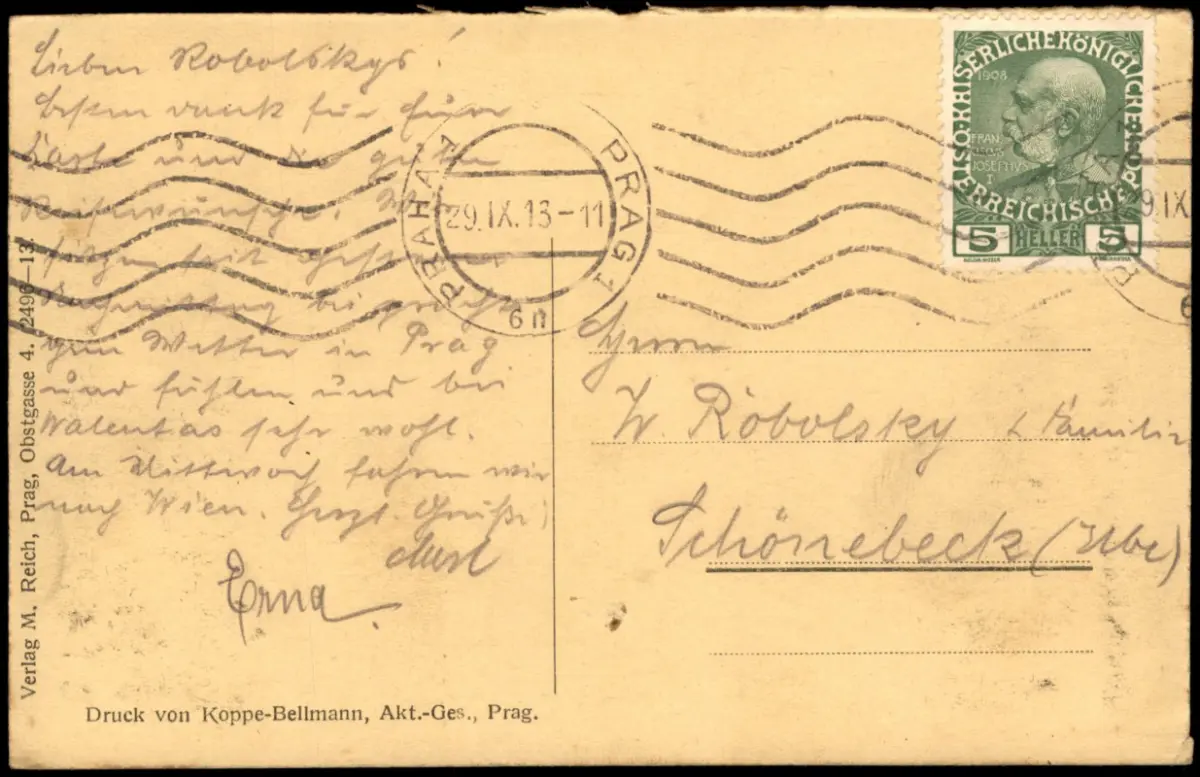 Lieben Robolskys!
Besten Dank für Eure
Karte und d. guten
Reisewünsche. Wir
sitzen seit gestern
Nachmittag bei
gem Wetter in Prag
und fühlen uns bei
Walentas sehr wohl.
Am Mittwoch fahren wir
nach Wien. Herzl. Grüße
Erna
Verlag M. Reich, Prag, Obstgasse 4. 2496—13.
Druck von Koppe-Bellmann, Akt.-Ges., Prag.
PRAHA 1 PRAG 1
29.IX.13-11
6n
KAISERLICHE KÖNIGLICHE ÖSTERREICHISCHE POST
1908
FRANCISCUS
JOSEPHUS
I
5 HELLER 5
9.IX
Herrn
W. Robolsky & Familie
Schönebeck (Elbe)